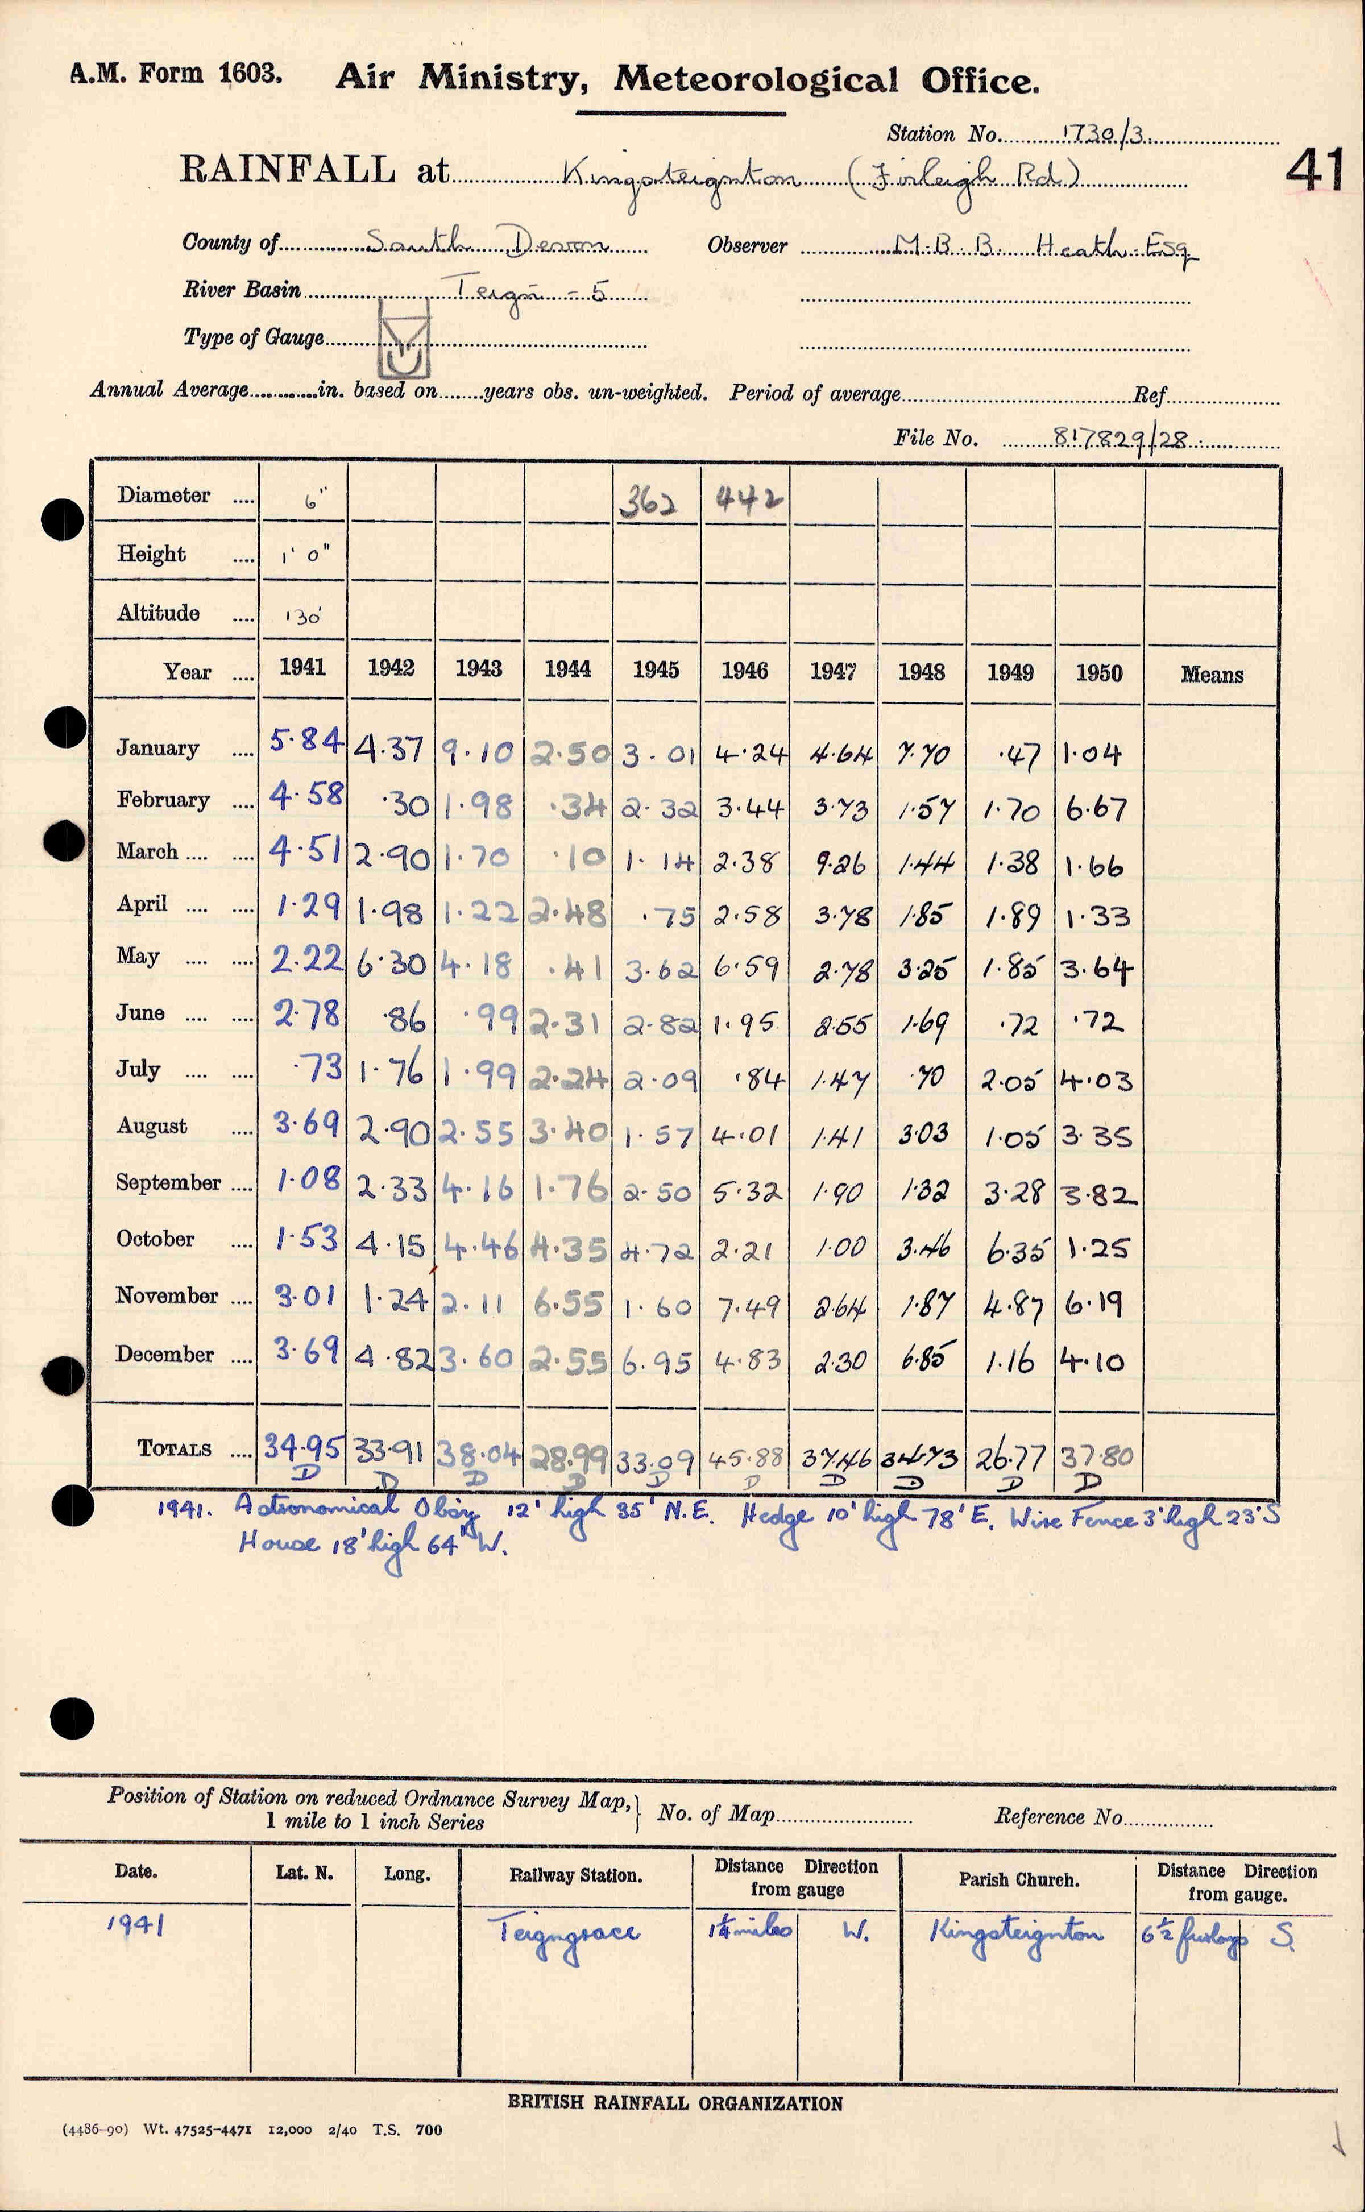 A.M. Form 1603. Air Ministry, Meteorological Office.
Station No. 1730/3.
41
RAINFALL at Kingsteignton (Firleigh Rd)
County of South Devon Observer M.B.B. Heath Esq
River Basin Teign - 5
Type of Gauge
Annual Average in. based on years obs. un-weighted. Period of average Ref
File No. 817829/28
Diameter 6" 362 442
Height 1' 0"
Altitude 130'
Year 1941 1942 1943 1944 1945 1946 1947 1948 1949 1950 Means
January 5.84 4.37 9.10 2.50 3.01 4.24 4.64 7.70 .47 1.04
February 4.58 .30 1.98 .34 2.32 3.44 3.73 1.57 1.70 6.67
March 4.51 2.90 1.70 .10 1.14 2.38 9.26 1.44 1.38 1.66
April 1.29 1.98 1.22 2.48 .75 2.58 3.78 1.85 1.89 1.33
May 2.22 6.30 4.18 .41 3.62 6.59 2.78 3.25 1.85 3.64
June 2.78 .86 .99 2.31 2.82 1.95 2.55 1.69 .72 .72
July .73 1.76 1.99 2.24 2.09 .84 1.47 .70 2.05 4.03
August 3.69 2.90 2.55 3.40 1.57 4.01 1.41 3.03 1.05 3.35
September 1.08 2.33 4.16 1.76 2.50 5.32 1.90 1.32 3.28 3.82
October 1.53 4.15 4.46 4.35 4.72 2.21 1.00 3.46 6.35 1.25
November 3.01 1.24 2.11 6.55 1.60 7.49 2.64 1.87 4.87 6.19
December 3.69 4.82 3.60 2.55 6.95 4.83 2.30 6.85 1.16 4.10
TOTALS 34.95 33.91 38.04 28.99 33.09 45.88 37.46 34.73 26.77 37.80
D D D D D D D D D D
1941. Astronomical Obsy 12' high 35' N.E. Hedge 10' high 78' E. Wire Fence 3' high 23' S
House 18' high 64' W.
Position of Station on reduced Ordnance Survey Map, No. of Map Reference No.
1 mile to 1 inch Series
Date. Lat. N. Long. Railway Station. Distance Direction from gauge Parish Church. Distance Direction from gauge.
1941 Teigngrace 1¼ miles W. Kingsteignton 6½ furlongs S.
BRITISH RAINFALL ORGANIZATION
(4486-90) Wt. 47525-4471 12,000 2/40 T.S. 700